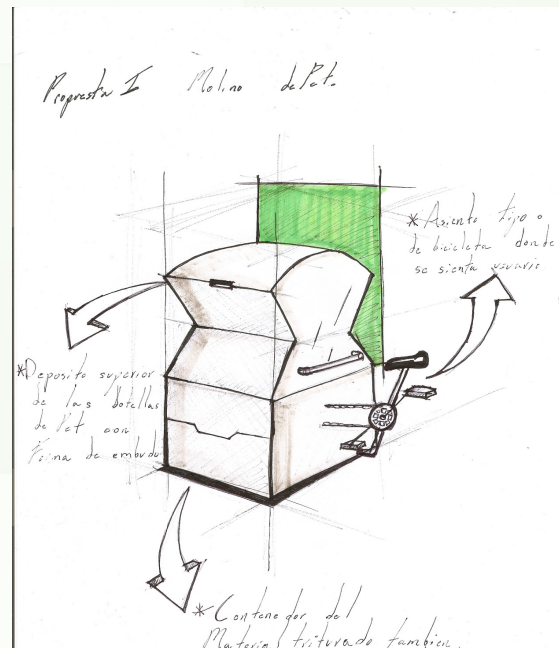 Propuesta I Molino de Pet.
* Asiento tipo
de bicicleta donde
se sienta usuario
*Deposito superior
de las botellas
de Pet con
Forma de embudo
* Contenedor del
Material triturado tambien